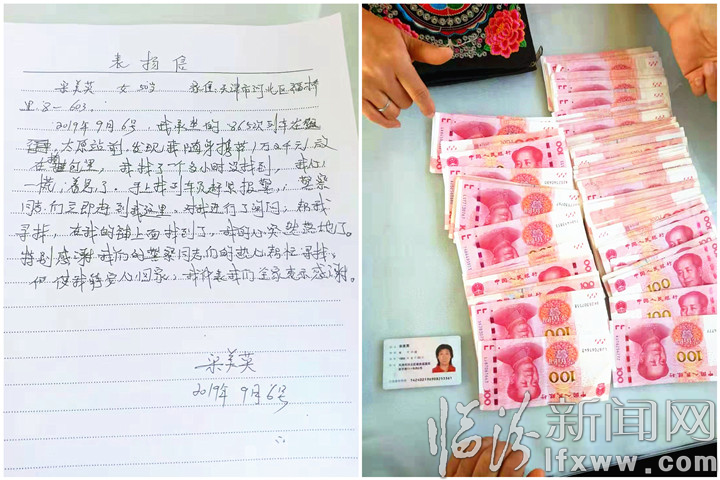 表扬信
梁美英 女 50岁 家住:天津市河北区
里8-603.
2019年9月6号,我乘坐的865次列车在
太原站到,发现我随身携带1万2千元放
在包里,我找了个多小时没找到,我心
一慌,着急了。马上找列车员赶紧报警,警察
同志们立即赶到我这里,对我进行了询问,帮我
寻找,在我的铺上面找到了,我的心突然落地了。
特别感谢我们的警察同志们的热心帮忙寻找,
使我能安心回家,我代表我们全家表示感谢。
梁美英
2019年9月6号
中国人民银行
100
临汾新闻网
lfxww.com